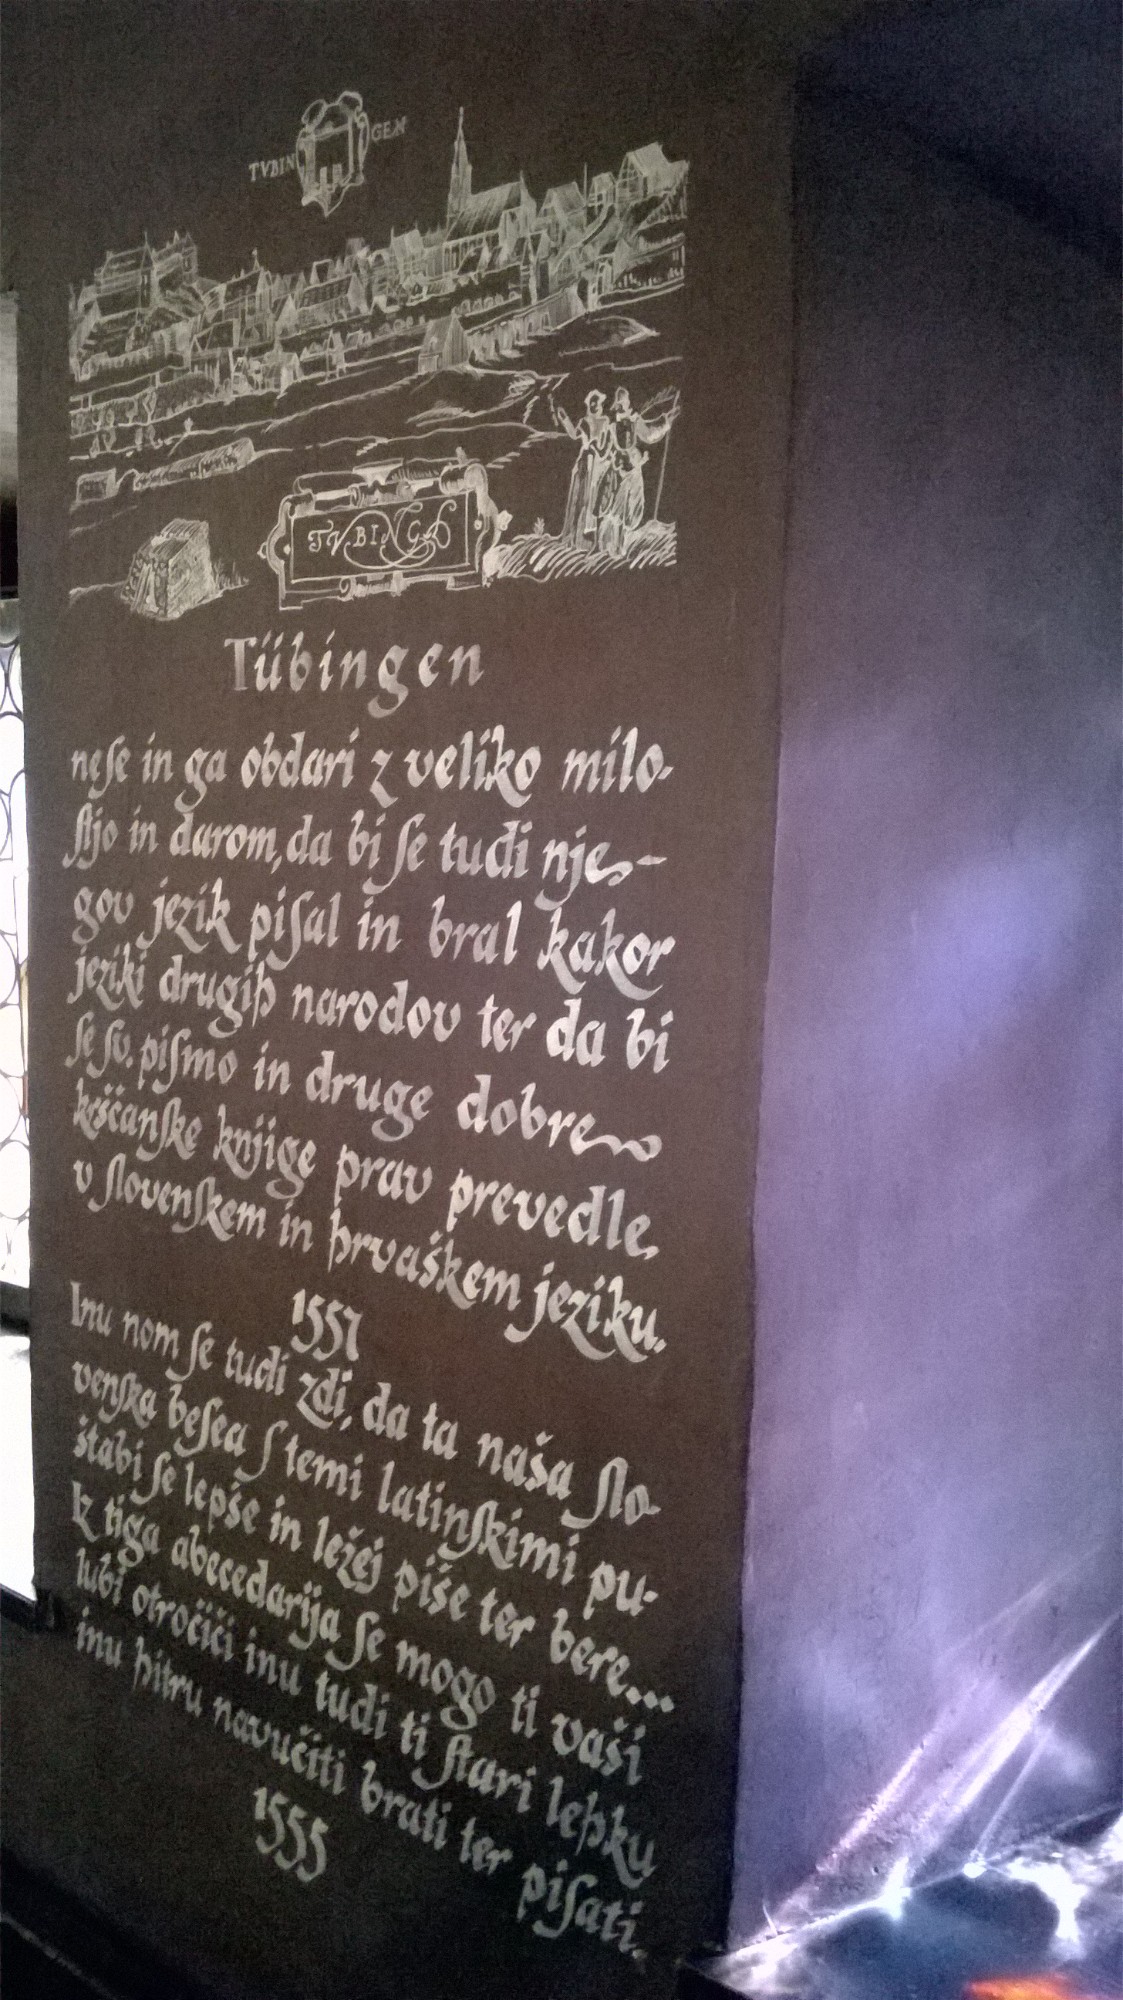 TVBIN GEN
TVBINGA
Tübingen
neſe in ga obdari z veliko milo-
ſtjo in darom, da bi ſe tudi nje-
gov jezik piſal in bral kakor
jeziki drugih narodov ter da bi
ſe ſv. piſmo in druge dobre
krščanſke knjige prav prevedle
v ſlovenſkem in hrvaškem jeziku.
1557
Inu nom ſe tudi zdi, da ta naša ſlo-
venſka beſea ſ temi latinſkimi pu-
štabi ſe lepše in ležej piše ter bere...
Iz tiga abecedarija ſe mogo ti vaši
lubi otročiči inu tudi ti ſtari lehku
inu hitru navučiti brati ter piſati.
1555